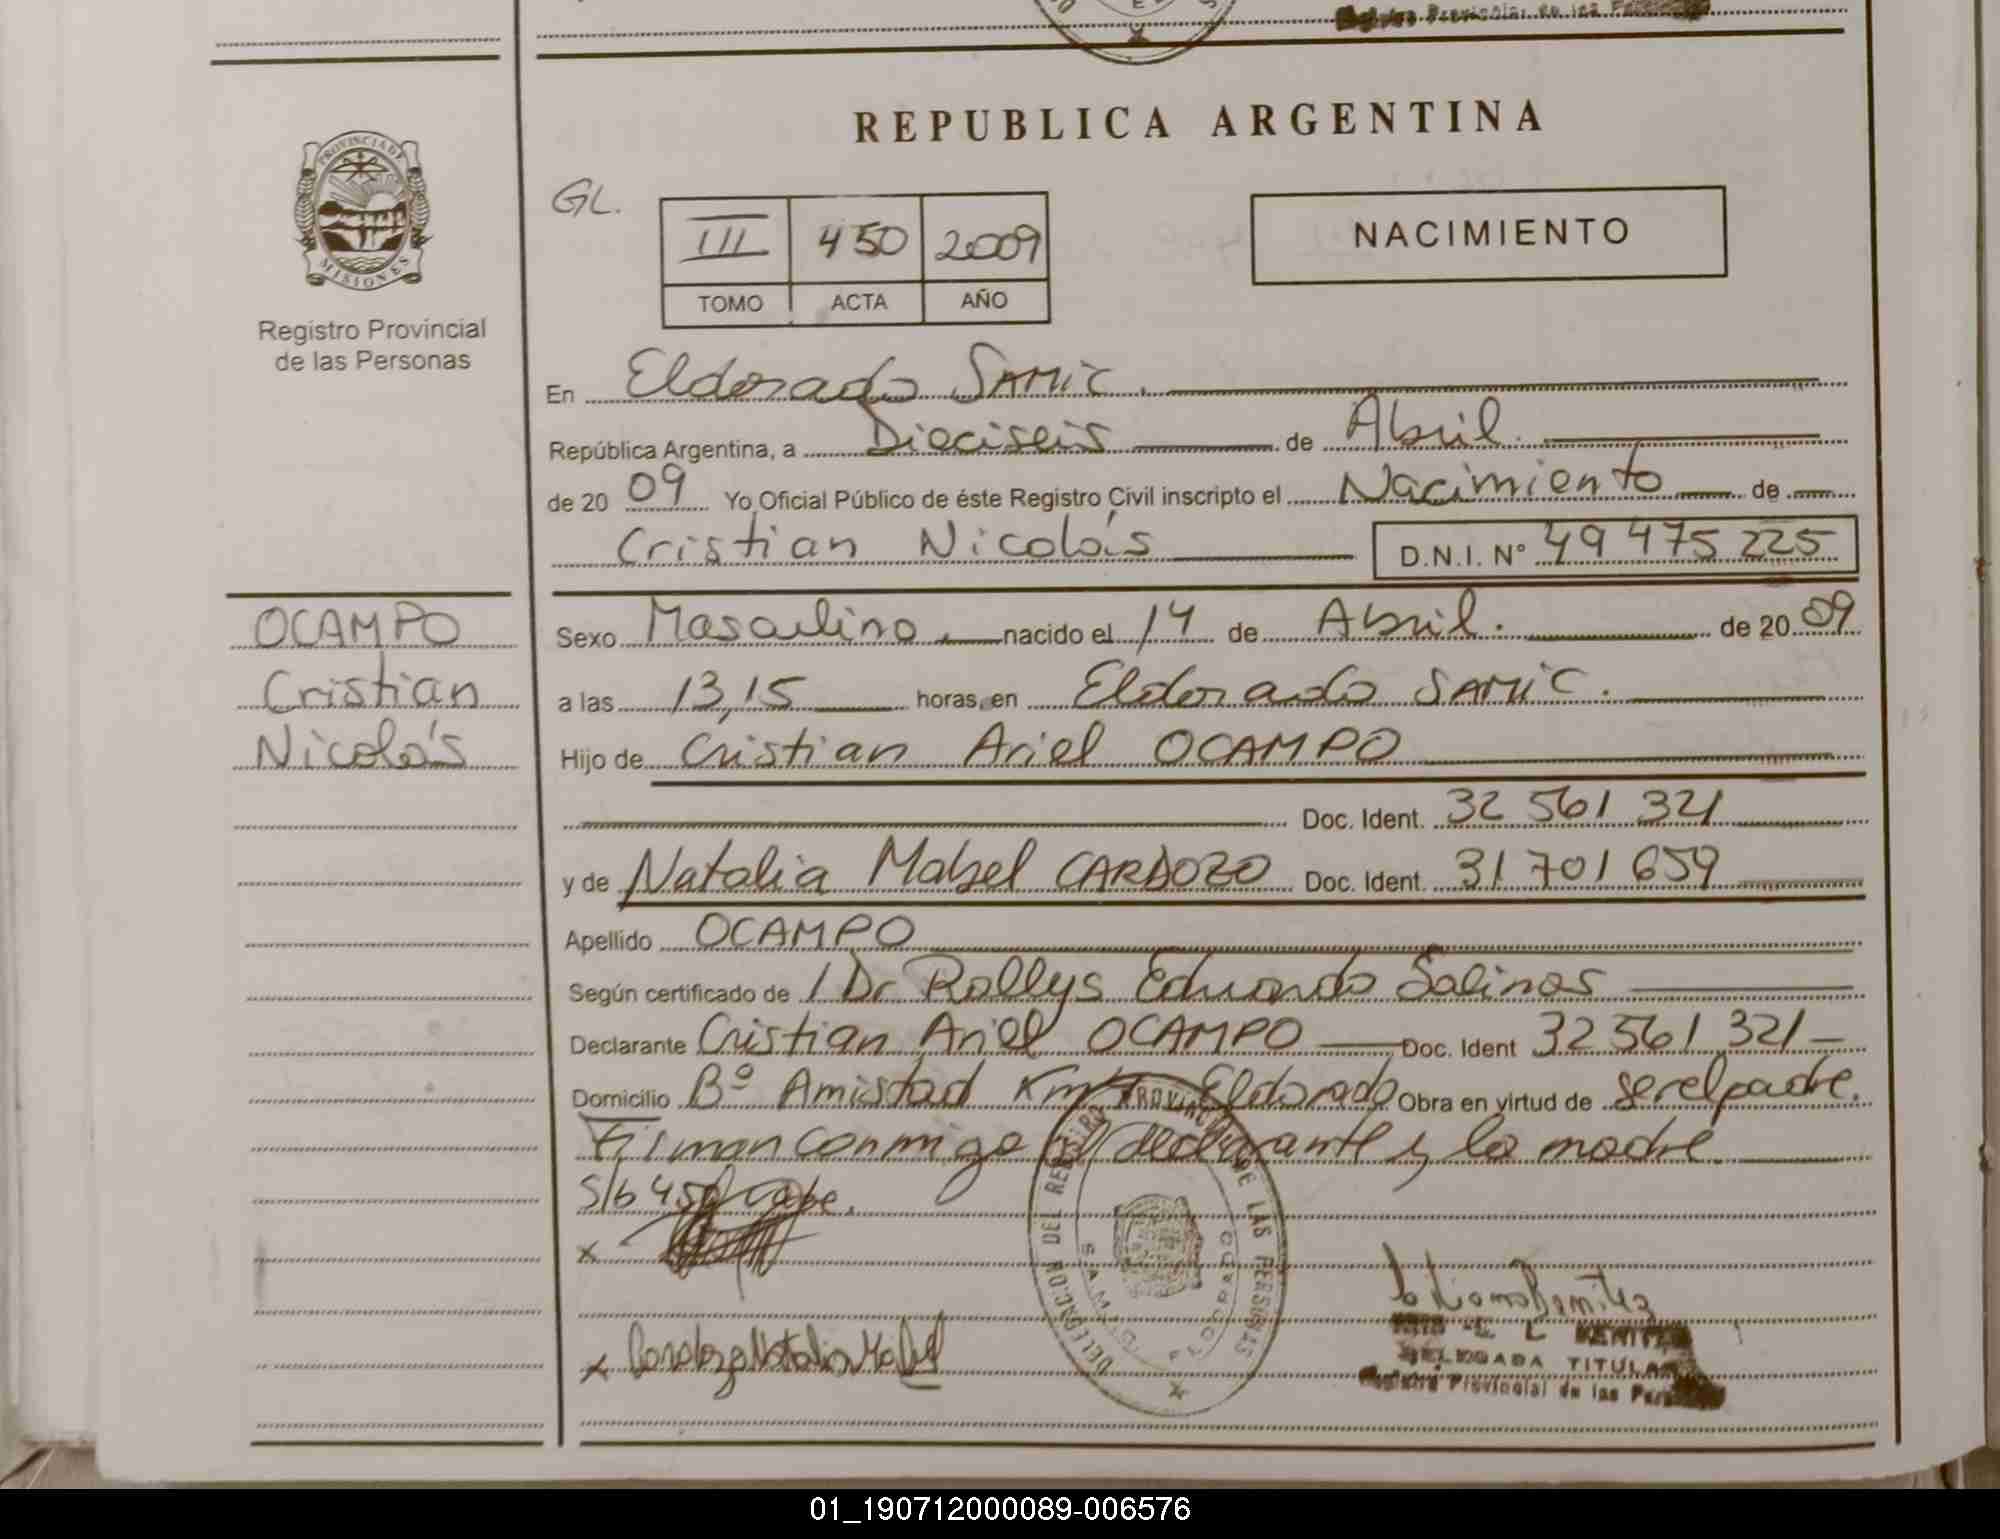 REPUBLICA ARGENTINA
PROVINCIA DE
MISIONES
Registro Provincial
de las Personas
GL.
III 450 2009
TOMO ACTA AÑO
NACIMIENTO
En Eldorado SAMIC.
República Argentina, a Dieciseis de Abril.
de 20 09 Yo Oficial Público de éste Registro Civil inscripto el Nacimiento de
Cristian Nicolás D.N.I. Nº 49 475 225
OCAMPO
Cristian
Nicolás
Sexo Masculino nacido el 14 de Abril. de 20 09
a las 13,15 horas, en Eldorado SAMIC.
Hijo de Cristian Ariel OCAMPO
Doc. Ident. 32 561 321
y de Natalia Mabel CARDOZO Doc. Ident. 31 701 659
Apellido OCAMPO
Según certificado de / Dr Rollys Eduardo Salinas
Declarante Cristian Ariel OCAMPO Doc. Ident 32 561 321
Domicilio Bº Amistad Km Eldorado Obra en virtud de ser el padre.
Firman conmigo el declarante y la madre.
S/b 450 Vale.
x
x Cardozo Natalia Mabel
DELEGACION DEL REGISTRO PROVINCIAL DE LAS PERSONAS
Benitez
DELEGADA TITULAR
Registro Provincial de las
01_190712000089-006576